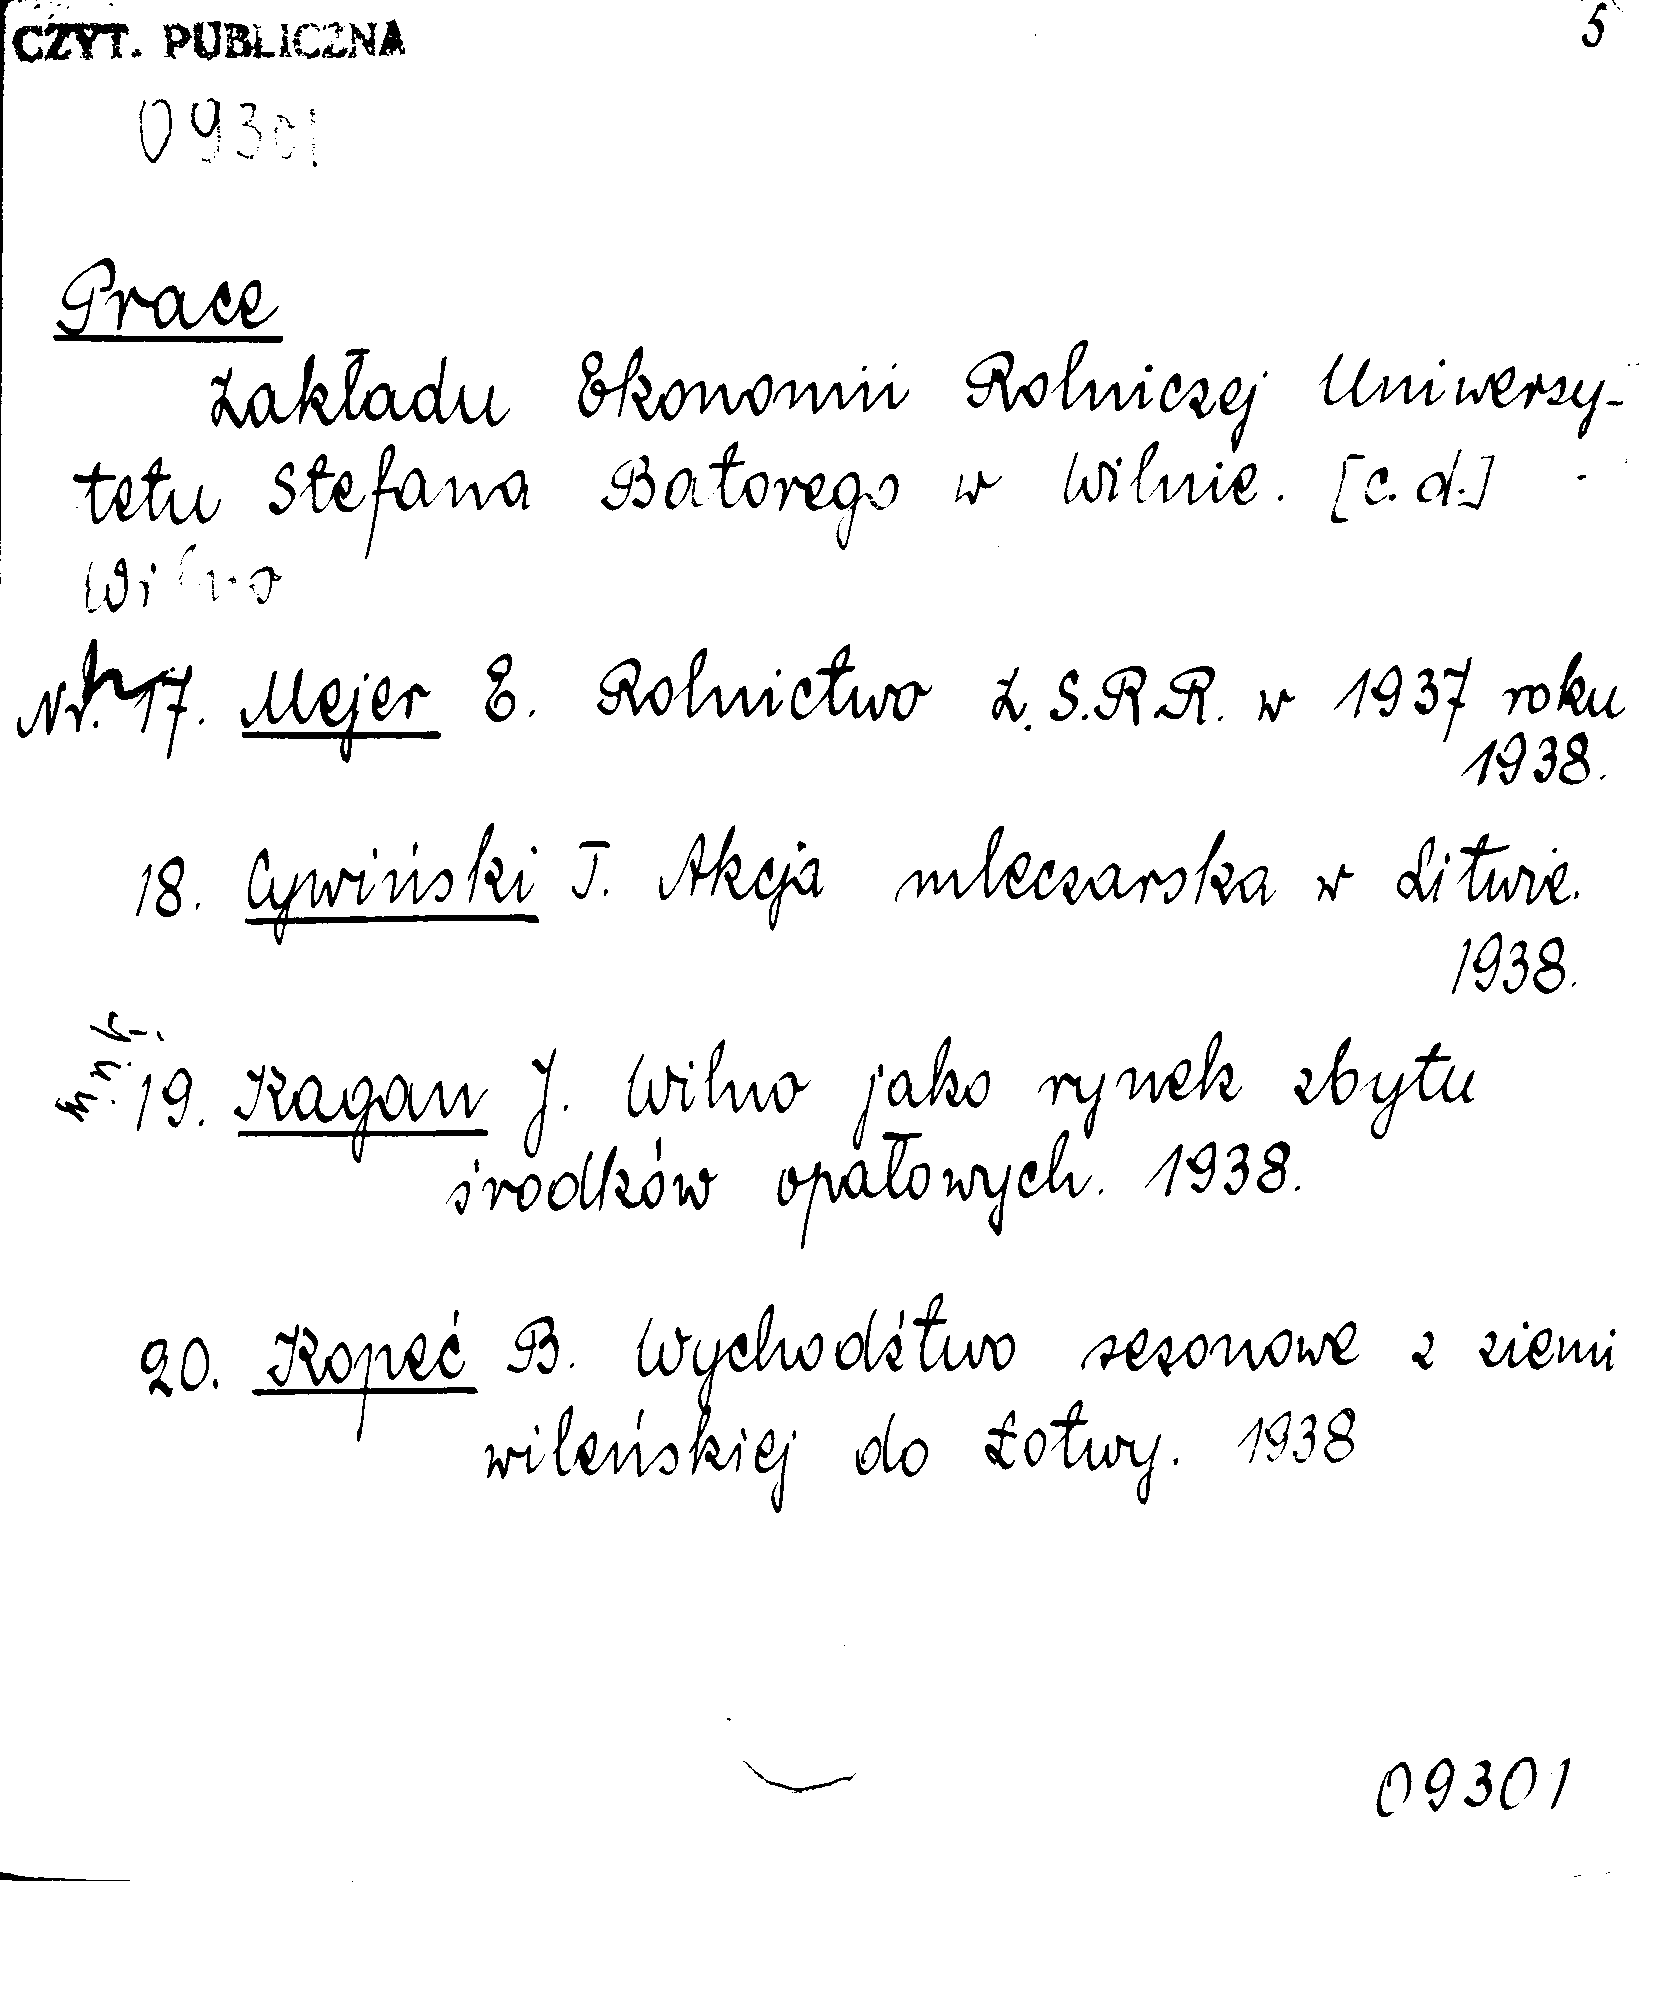 CZYT. PUBLICZNA 5
09301
Prace
Zakładu Ekonomii Rolniczej Uniwersy-
tetu Stefana Batorego w Wilnie. [c.d.]
Wilno
Nr. 17. Mejer E. Rolnictwo Z.S.R.R. w 1937 roku
1938.
18. Cywiński T. Akcja mleczarska w Litwie.
1938.
19. Kagan J. Wilno jako rynek zbytu
środków opałowych. 1938.
20. Kopeć B. Wychodźtwo sezonowe z ziemi
wileńskiej do Łotwy. 1938
09301